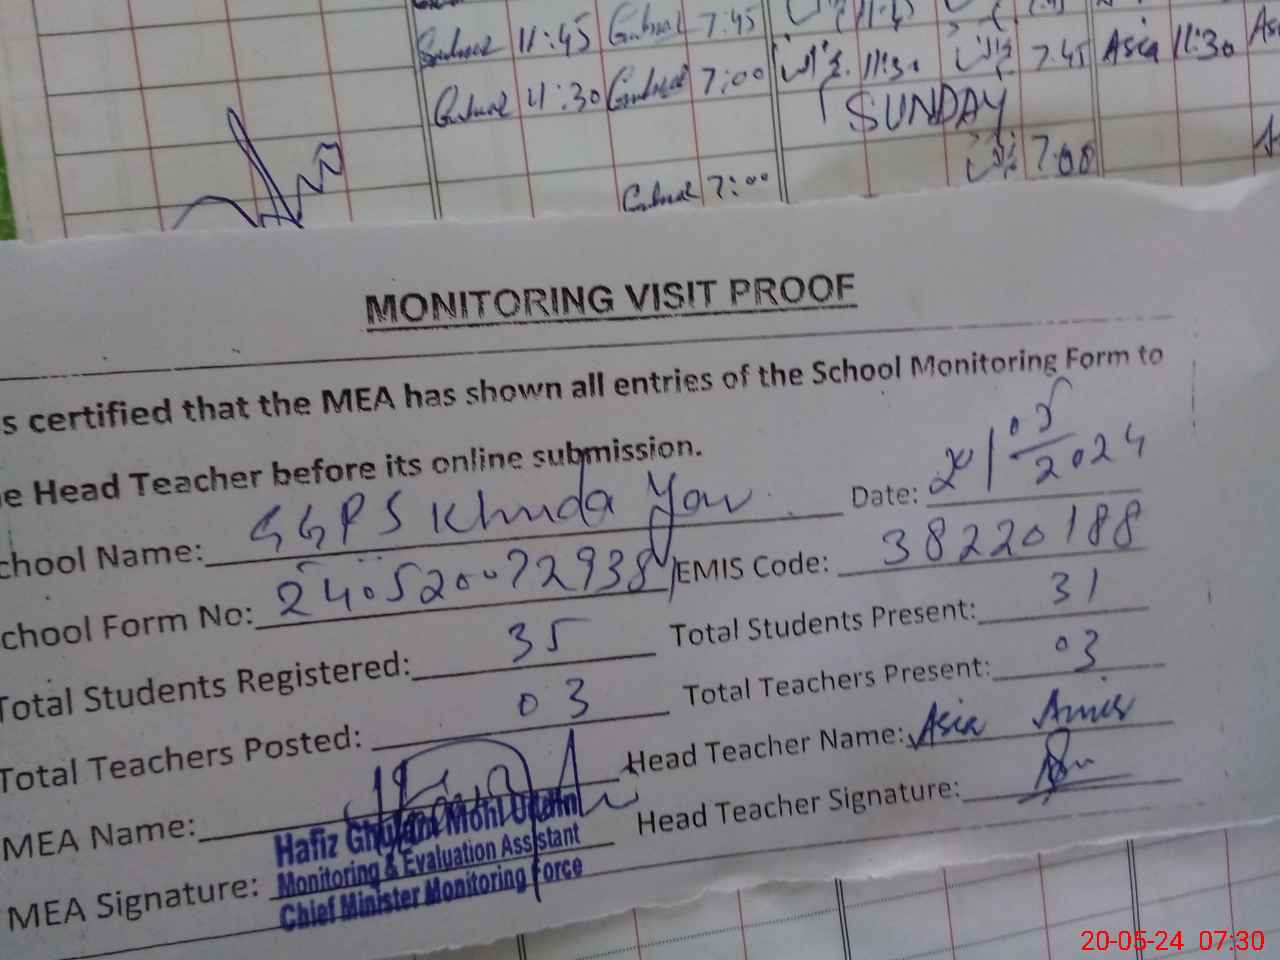 11:45 Gulnaz 7:45
Gulnaz 11:30 Gulnaz 7:00 11:30 7:45 Asia 11:30
SUNDAY
Gulnaz 7:00 7:00
MONITORING VISIT PROOF
s certified that the MEA has shown all entries of the School Monitoring Form to
e Head Teacher before its online submission.
chool Name: GGPS Khuda Yar Date: 05 2024
chool Form No: 2405200729387 EMIS Code: 38220188
Total Students Registered: 35 Total Students Present: 31
Total Teachers Posted: 03 Total Teachers Present: 03
MEA Name: Head Teacher Name: Asia Anis
MEA Signature: Head Teacher Signature:
Hafiz Ghulam Mohi Uddin
Monitoring & Evaluation Assistant
Chief Minister Monitoring Force
20-05-24 07:30